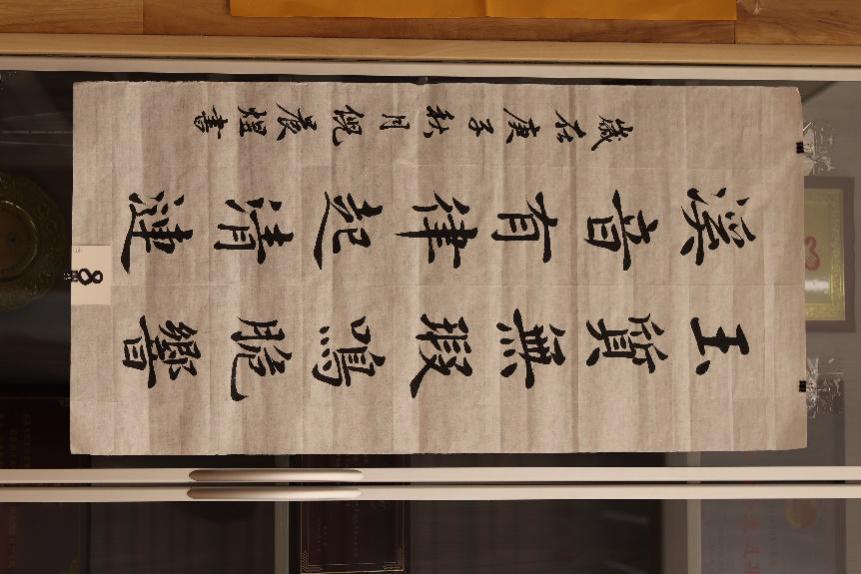 玉質無瑕鳴脆響
溪音有律起清漣
歲在庚子秋月倪晨煌書
8